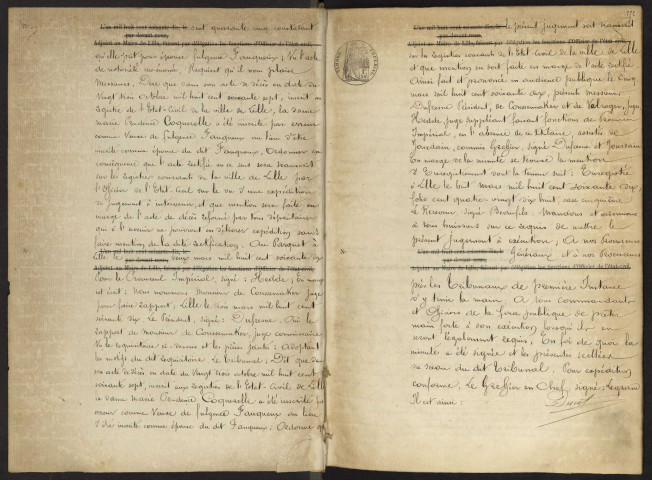 L'an mil huit cent soixante dix, le cent quarante cinq constatant
par devant nous,
Adjoint au Maire de Lille, faisant par délégation les fonctions d'Officier de l'état civil,
qu'elle était pour épouse Fulgence Fauqueux; Vu l'acte
de notoriété
Messieurs, Dire que dans son acte de décès en date du
Vingt trois octobre mil huit cent soixante sept, inscrit au
registre de l'Etat-Civil de la ville de Lille, la dame
Marie Prudence Coquerelle a été inscrite par erreur
comme Veuve de Fulgence Fauqueux au lieu d'être
inscrite comme épouse du dit Fauqueux, Ordonner en
conséquence que l'acte rectifié en ce sens sera transcrit
sur les registres courants de la ville de Lille par
l'officier de l'Etat-Civil sur le vu d'une expédition
du jugement à intervenir, et que mention sera faite en
marge de l'acte de décès réformé par tous dépositaires
qui à l'avenir ne pourront en délivrer expédition sans
faire mention de la dite rectification. Au Parquet à
L'an mil huit cent soixante dix, le
Lille le deux mars mil huit cent soixante dix
par devant nous,
Adjoint au Maire de Lille, faisant par délégation les fonctions d'Officier de l'état civil,
Pour le Procureur Impérial, signé: Hedde; En marge
est écrit: Nous nommons Monsieur de Coussemaker Juge
pour faire rapport, Lille le trois mars mil huit cent
soixante dix. Le Président, signé: Dufresne. Ouï le
rapport de Monsieur de Coussemaker, juge commissaire
Vu le réquisitoire ci-dessus et les pièces jointes: Adoptant
les motifs du dit réquisitoire Le Tribunal; Dit que dans
son acte de décès en date du Vingt trois octobre mil huit cent
soixante sept, inscrit aux registres de l'Etat-Civil de Lille
la dame Marie Prudence Coquerelle a été inscrite par
erreur comme Veuve de Fulgence Fauqueux au lieu
d'être inscrite comme épouse du dit Fauqueux; Ordonne que
L'an mil huit cent soixante dix, le le présent jugement soit transcrit
par devant nous,
Adjoint au Maire de Lille, faisant par délégation les fonctions d'Officier de l'état civil,
sur les registres courants de l'Etat Civil de la ville de Lille
et que mention en soit faite en marge de l'acte rectifié.
Ainsi fait et prononcé en audience publique le cinq
mars mil huit cent soixante dix, présents messieurs
Dufresne Président, de Coussemaker et de juges
Hedde, juge suppléant faisant fonctions de Procureur
Impérial, en l'absence de ce titulaire, assistés de
Jourdain, commis Greffier, signé Dufresne et Jourdain
En marge de la minute se trouve la mention
d'Enregistrement dont la teneur suit: Enregistré
à Lille le huit mars mil huit cent soixante dix,
folio cent quatre vingt dix huit, case cinquième
Le Receveur signé Mandons et ordonnons
à tous huissiers sur ce requis de mettre le
présent jugement à exécution; A nos procureurs
L'an mil huit cent soixante dix, le
par devant nous, Généraux et à nos Procureurs
Adjoint au Maire de Lille, faisant par délégation les fonctions d'Officier de l'état civil,
près les Tribunaux de première Instance
d'y tenir la main. A tous commandants
et Officiers de la force publique de prêter
main forte à son exécution lorsqu'ils en
seront légalement requis, En foi de quoi la
minute a été signée et les présentes scellées
du sceau du dit Tribunal. Pour expédition
conforme. Le Greffier en Chef, signé: Legrain
Il est ainsi: